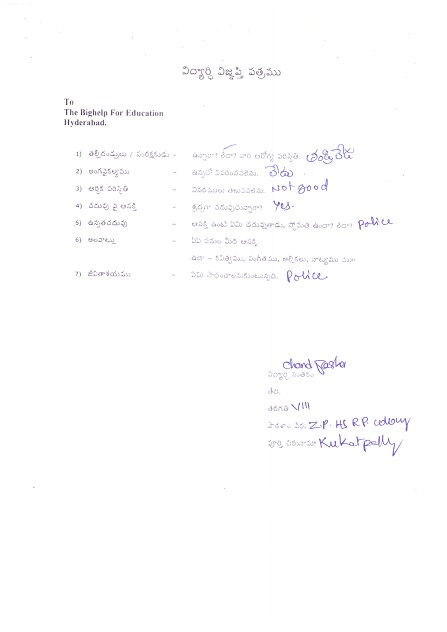 విద్యార్థి విజ్ఞప్తి పత్రము
To
The Bighelp For Education
Hyderabad.
1) తల్లిదండ్రులు / సంరక్షకుడు – ఉన్నారా? లేదా? వారి ఆరోగ్య పరిస్థితి. తండ్రి లేడు
2) అంగవైకల్యము – ఉన్నచో వివరించవలెను. లేదు
3) ఆర్థిక పరిస్థితి – వివరములు తెలుపవలెను. Not good
4) చదువు పై ఆసక్తి – శ్రద్ధగా చదువుచున్నారా? Yes.
5) ఉన్నతచదువు – ఆసక్తి ఉంటే ఏమి చదువుతాడు, స్తోమత ఉందా? లేదా? police
6) అలవాట్లు – ఏఏ పనుల మీద ఆసక్తి
ఉదా – కవిత్వము, సంగీతము, అల్లికలు, నాట్యము మా॥
7) జీవితాశయము – ఏమి సాధించాలనుకుంటున్నది. Police
Chand Pasha
విద్యార్థి సంతకం
తేది.
తరగతి VIII
పాఠశాల పేరు Z.P. HS R P colony
పూర్తి చిరునామా Kukatpally